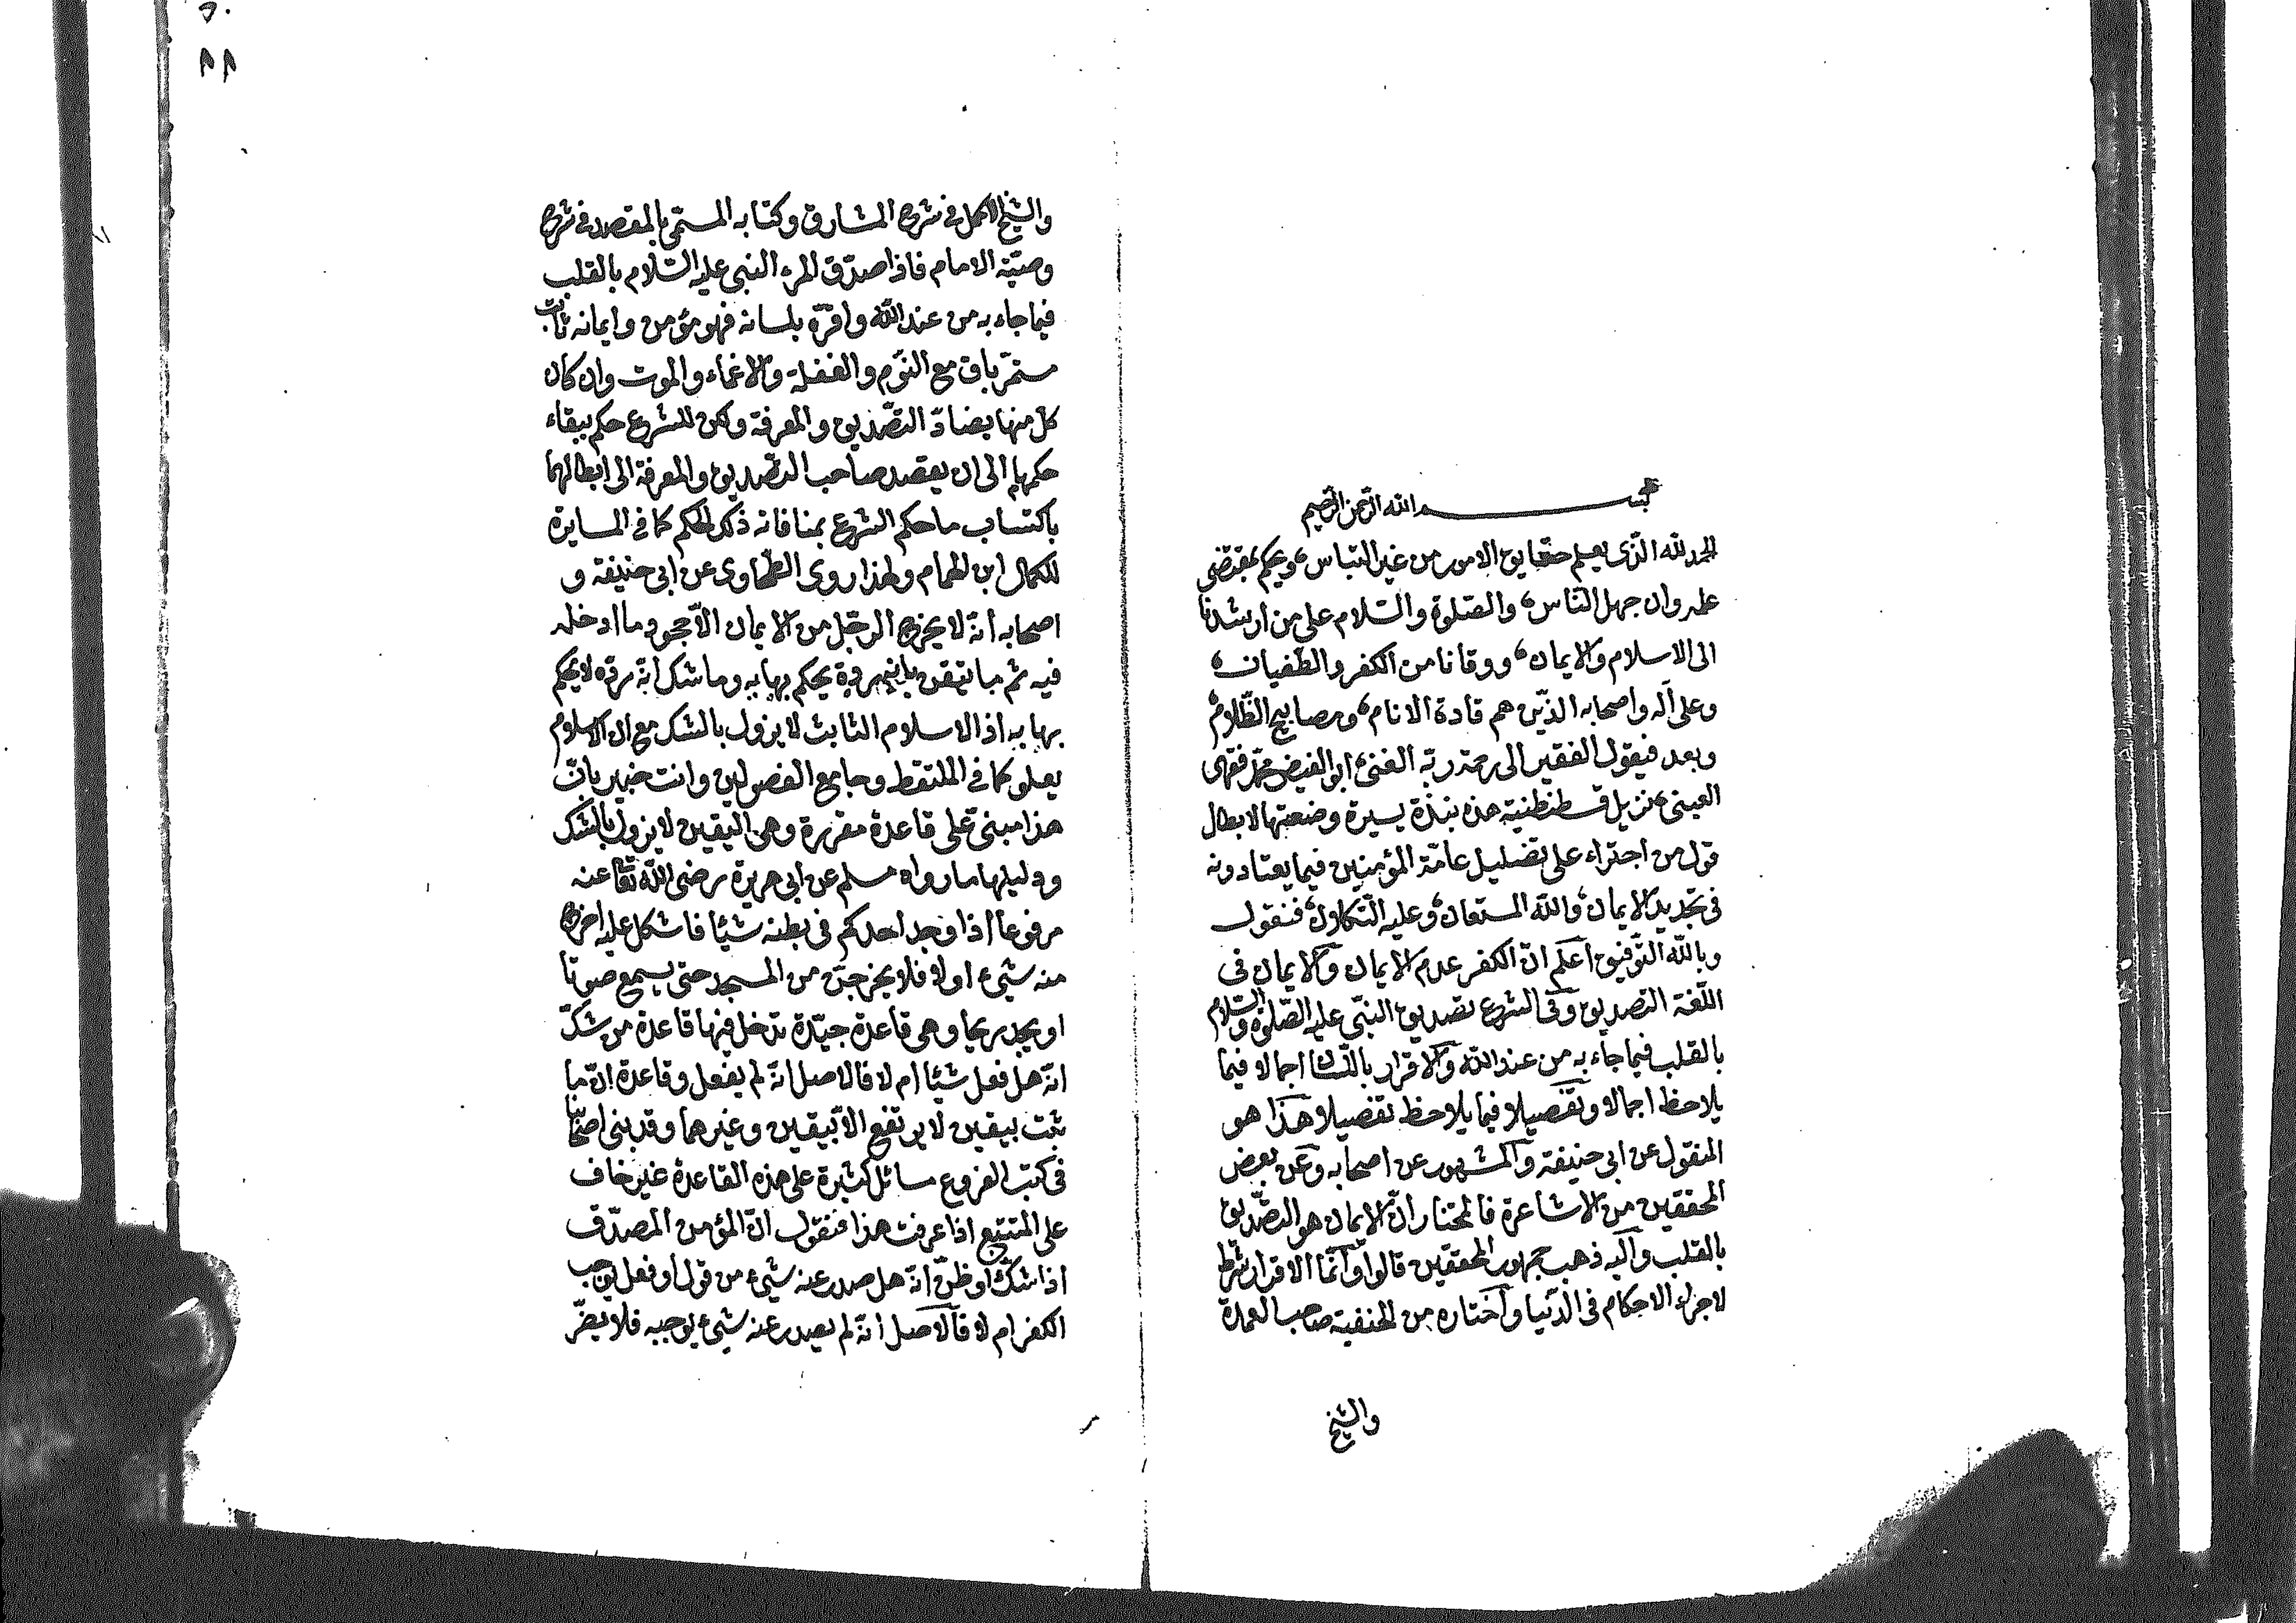 بسم الله الرحمن الرحيم
الحمد لله الذى يعلم حقايق الامور من غير التباس، ويحكم بمقتضى
علمه وان جهل النّاس، والصّلوة والسّلام على من ارشدنا
الى الاسلام والايمان، ووقانا من الكفر والطّغيان،
وعلى آله واصحابه الذّين هم قادة الانام، ومصابيح الظّلام،
وبعد فيقول الفقير الى رحمة ربّه الغنىّ ابو الفيض محمّد فقهى
العينى، نزيل قسطنطنية هذه نبذة يسيرة وضعتها لابطال
قول من اجتراء على تضليل عامّة المؤمنين فيما يعتادونه
فى تجديد الايمان، والله المستعان، وعليه التّكلان، فنقول
وبالله التّوفيق اعلم انّ الكفر عدم الايمان والايمان فى
اللّغة التصديق وفى الشرع تصديق النّبى عليه الصّلوة والسّلام
بالقلب فيما جاء به من عند الله والاقرار باللّسان اجمالا فيما
يلاحظ اجمالا وتفصيلا فيما يلاحظ تفصيلا هكذا هو
المنقول عن ابى حنيفة والمشهور عن اصحابه وعن بعض
المحققين من الاشاعرة فالمختار انّ الايمان هو التّصديق
بالقلب واليه ذهب جمهور المحققين قالوا وانّما الاقرار شرط
لاجراء الاحكام فى الدّنيا واختاره من الحنفية صاحب العمدة
والشيخ
والشيخ الاكمل فى شرح المشارق وكتابه المسمّى بالمقصد فى شرح
وصيّة الامام فاذا صدّق المرء النبى عليه السّلام بالقلب
فيما جاء به من عند الله واقرّه بلسانه فهو مؤمن وايمانه ثابت
مستمرّ باق مع النّوم والغفلة والاغماء والموت وان كان
كلّ منها يضادّ التّصديق والمعرفة ولكن للشرع حكم ببقاء
حكمها الى ان يقصد صاحب التّصديق والمعرفة الى ابطالهما
باكتساب ما حكم الشرع بمنافاته ذلك الحكم كما فى المسايرة
للكمال ابن الهمام ولهذا روى الطّحاوى عن ابى حنيفة و
اصحابه انّه لا يخرج الرجّل من الايمان الاّ جحود ما ادخله
فيه ثم ما تيقن بانه ردة يحكم بها به وما شك انّه ردّه لا يحكم
بها به اذ الاسلام الثابت لا يزول بالشك مع ان الاسلام
يعلو كما فى الملتقط وجامع الفصولين وانت خبير بانّ
هذا مبنىّ على قاعدة مقررة وهى اليقين لا يزول بالشك
ودليلها ما رواه مسلم عن ابى هريرة رضى الله تعا عنه
مرفوعا اذا وجد احدكم فى بطنه شيئا فاشكل عليه اخرج
منه شىء اولا فلا يخرجنّ من المسجد حتى يسمع صوتا
او يجد ريحا وهى قاعدة جيّدة تدخل فيها قاعدة من شكّ
انّه هل فعل شيئا ام لا فالاصل انّه لم يفعل وقاعدة انّ ما
ثبت بيقين لا يرتفع الاّ بيقين وغيرهما وقد بنى اصحابنا
فى كتب الفروع مسائل كثيرة على هذه القاعدة غير خاف
على المتتبع اذا عرفت هذا فنقول انّ المؤمن المصدّق
اذا شكّ او ظنّ انّه هل صدر عنه شىء من قول او فعل يوجب
الكفر ام لا فالاصل انّه لم يصدر عنه شىء يوجبه فلا يضرّ